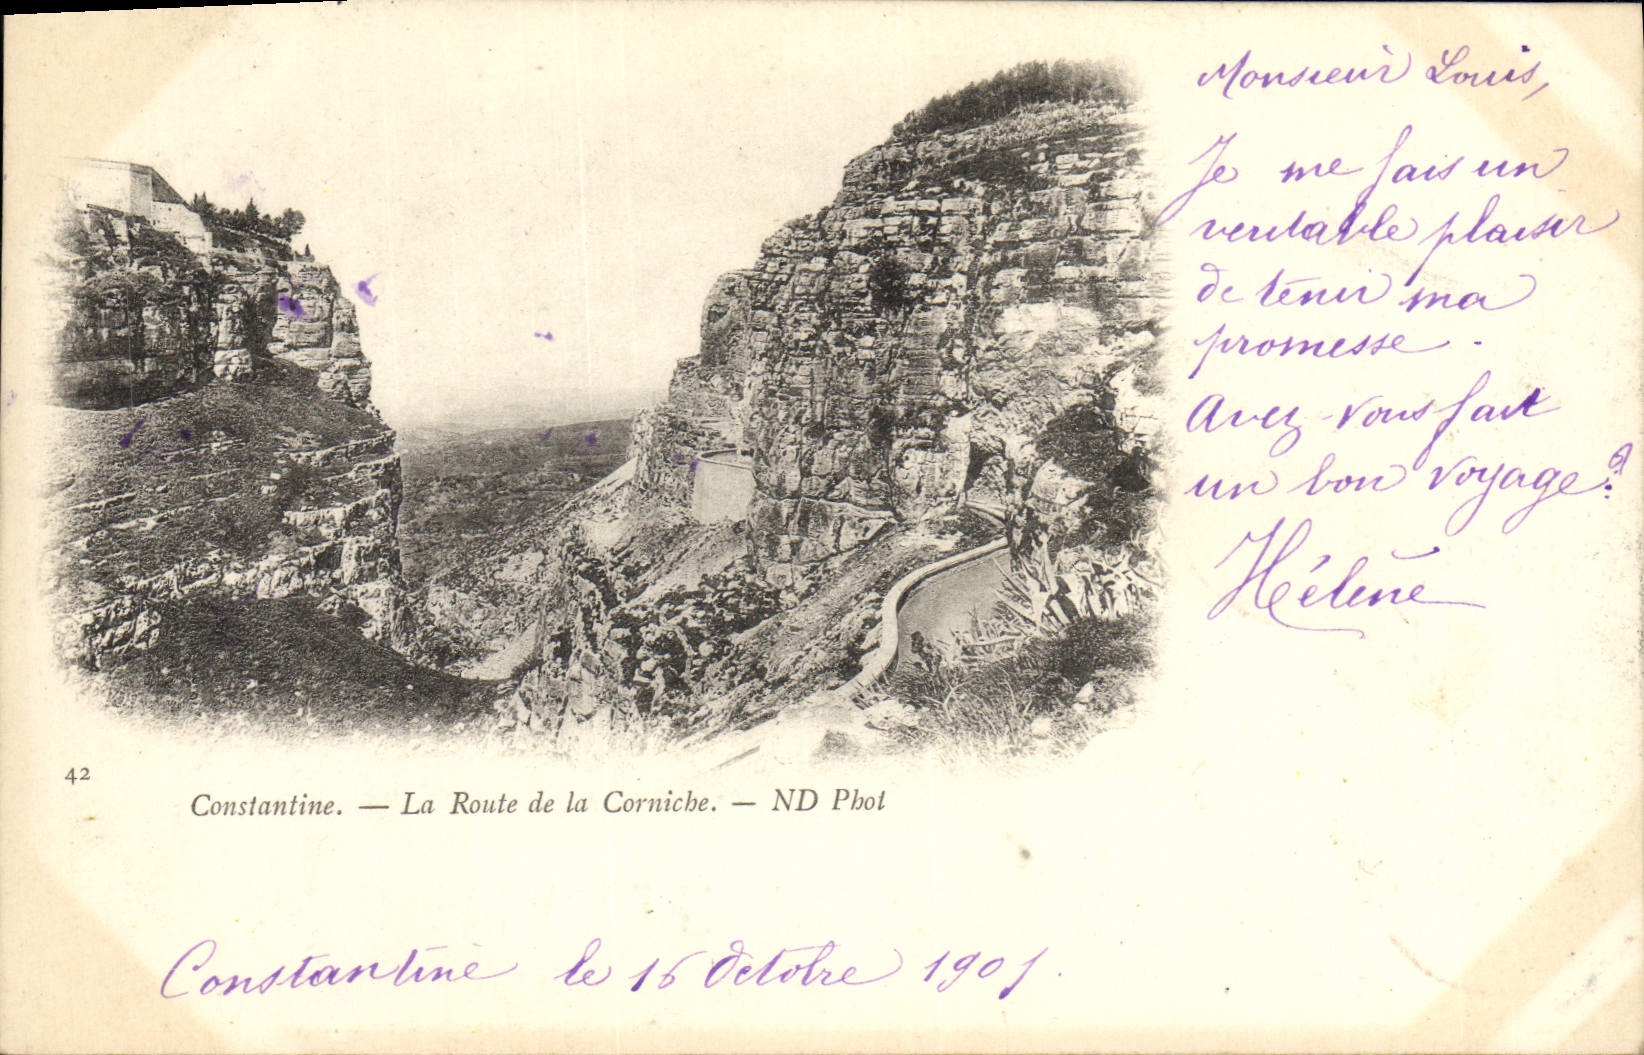 Monsieur Louis,
Je me fais un
veritable plaisir
de tenir ma
promesse.
Avez-vous fait
un bon voyage?
Hélène
42
Constantine. — La Route de la Corniche. — ND Phot
Constantine le 16 Octobre 1901.